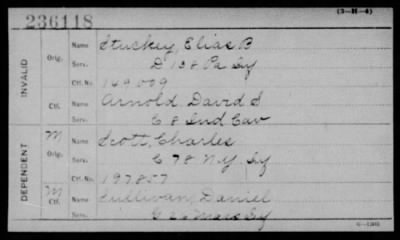 236118
(3—H—4)
INVALID
Orig.
Name Stuckey, Elias B
Serv. D 138 Pa Inf
Ctf. No. 149,009
Ctf.
Name Arnold David S
Serv. C 8 Ind Cav
DEPENDENT
M
Orig.
Name Scott, Charles
Serv. C 78 N.Y. Inf
Ctf. No. 197857
M
Ctf.
Name Sullivan, Daniel
Serv. Mass Inf